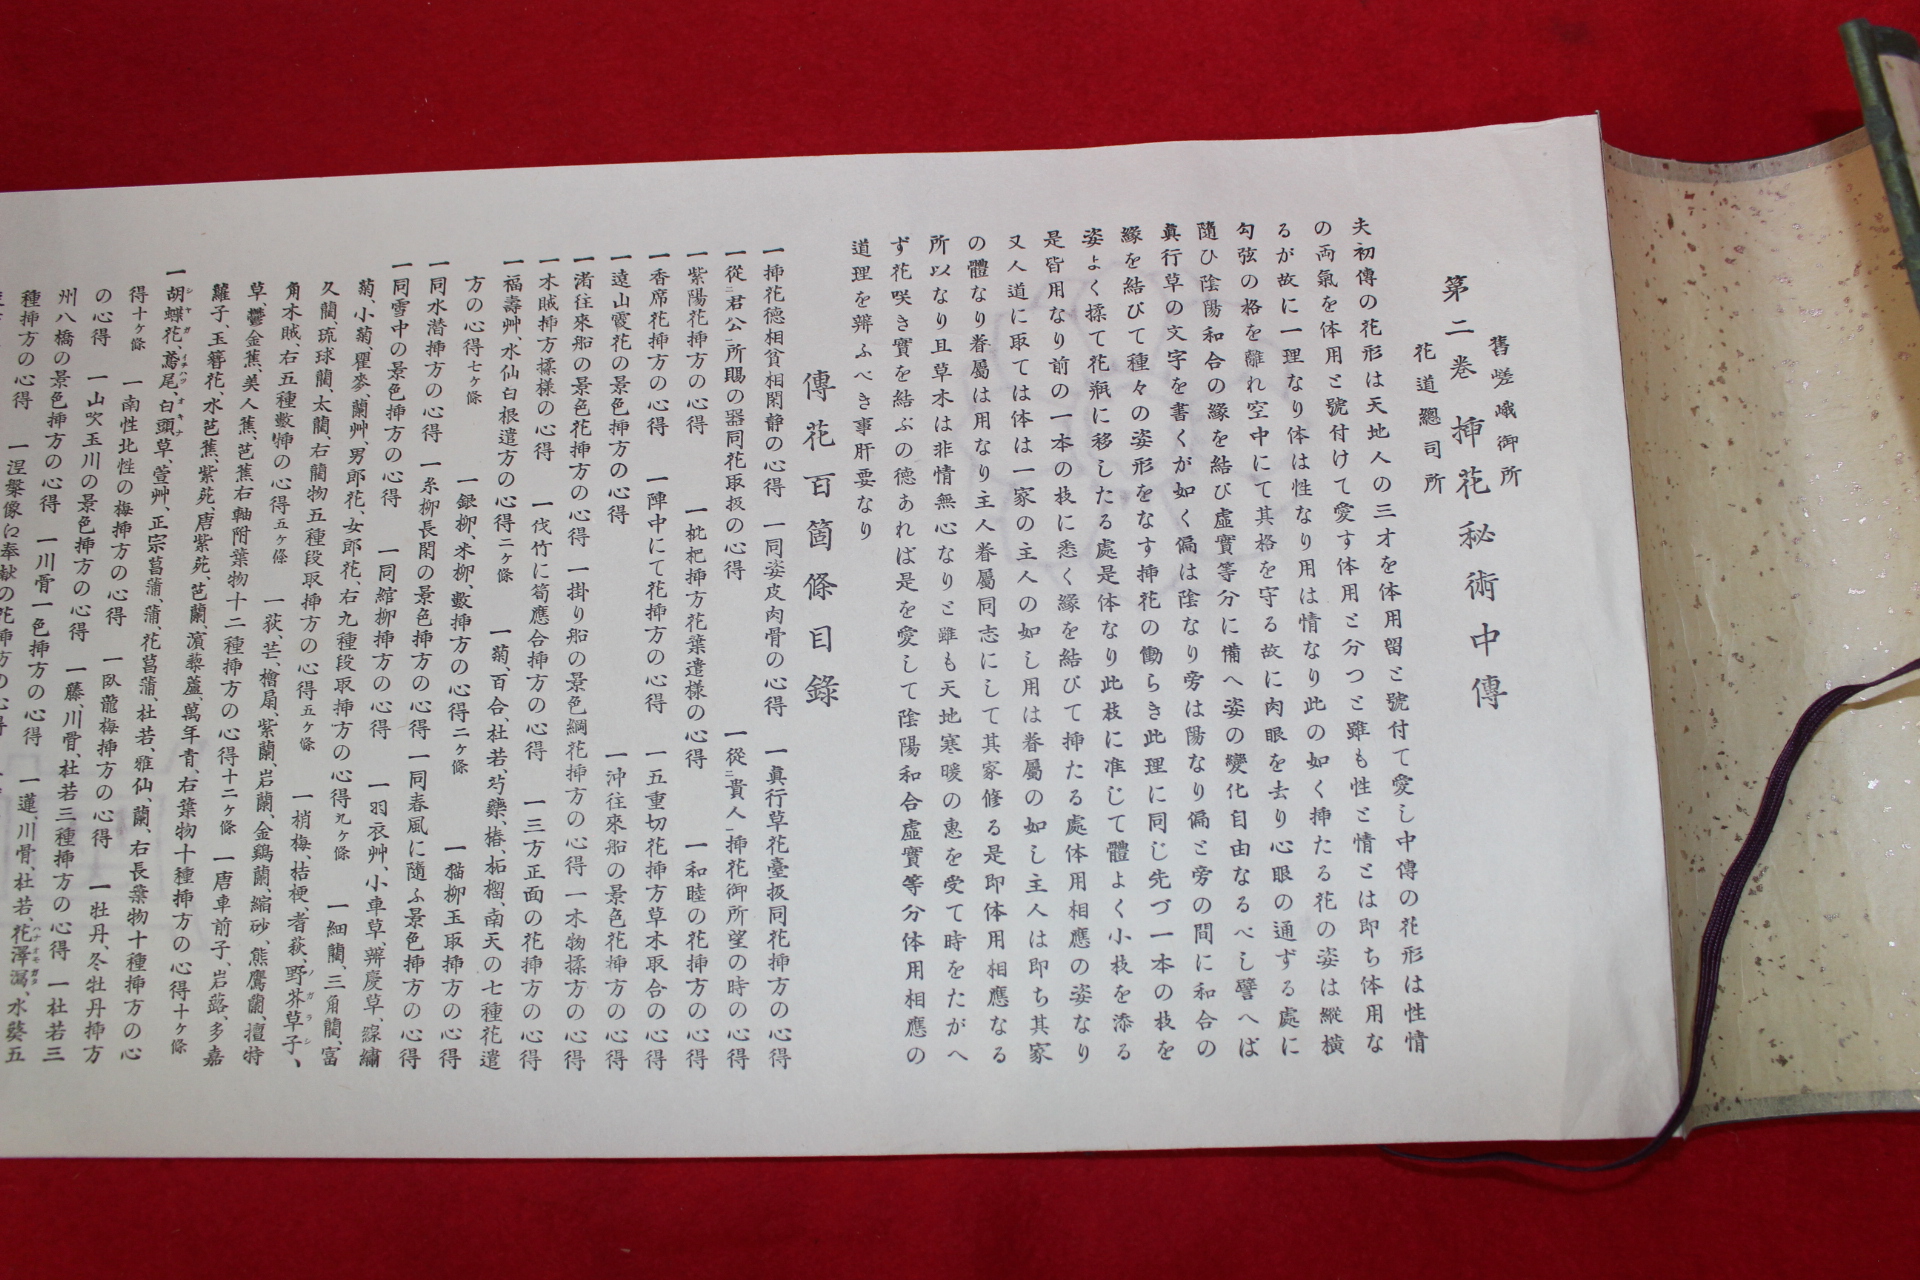 舊嵯峨御所
花道總司所
第二巻 挿花秘術中傳
夫初傳の花形は天地人の三才を体用留と號付て愛し中傳の花形は性情
の両氣を体用と號付けて愛す体用と分つと雖も性と情とは即ち体用な
るが故に一理なり体は性なり用は情なり此の如く挿たる花の姿は縱横
勾弦の格を離れ空中にて其格を守る故に肉眼を去り心眼の通ずる處に
隨ひ陰陽和合の縁を結び虚實等分に備へ姿の變化自由なるべし譬へば
眞行草の文字を書くが如く偏は陰なり旁は陽なり偏と旁の間に和合の
縁を結びて種々の姿形をなす挿花の働らき此理に同じ先づ一本の枝を
姿よく揉て花瓶に移したる處是体なり此枝に准じて體よく小枝を添る
是皆用なり前の一本の枝に悉く縁を結びて挿たる處体用相應の姿なり
又人道に取ては体は一家の主人の如し用は眷屬の如し主人は即ち其家
の體なり眷屬は用なり主人眷屬同志にして其家修る是即体用相應なる
所以なり且草木は非情無心なりと雖も天地寒暖の惠を受て時をたがへ
ず花咲き實を結ぶの徳あれば是を愛して陰陽和合虚實等分体用相應の
道理を辨ふべき事肝要なり
傳花百箇條目錄
一挿花德相貧相閑静の心得 一同姿皮肉骨の心得 一眞行草花臺扱同花挿方の心得
一從二君公一所賜の器同花取扱の心得 一從二貴人一挿花御所望の時の心得
一紫陽花挿方の心得 一枇杷挿方花葉遣様の心得 一和睦の花挿方の心得
一香席花挿方の心得 一陣中にて花挿方の心得 一五重切花挿方草木取合の心得
一遠山霞花の景色挿方の心得 一沖往來船の景色花挿方の心得
一渚往來船の景色花挿方の心得 一掛り船の景色綱花挿方の心得 一木物揉方の心得
一木賊挿方揉様の心得 一伐竹に筍應合挿方の心得 一三方正面の花挿方の心得
一福壽艸、水仙白根遣方の心得二ヶ條 一菊、百合、杜若、芍藥、椿、柘榴、南天の七種花遣
方の心得七ヶ條 一銀柳、木柳、數挿方の心得二ヶ條 一猫柳玉取挿方の心得
一同水潜挿方の心得 一糸柳長閑の景色挿方の心得 一同春風に隨ふ景色挿方の心得
一同雪中の景色挿方の心得 一同綰柳挿方の心得 一羽衣艸、小車草、辨慶草、線繡
菊、小菊、瞿麥、蘭艸、男郎花、女郎花、右九種段取挿方の心得九ヶ條 一細藺、三角藺、富
久藺、琉球藺、太藺、右藺物五種段取挿方の心得五ヶ條 一梢梅、桔梗、耆萩、野芥草子、
角木賊、右五種數挿の心得五ヶ條 一荻、芒、檜扇、紫蘭、岩蘭、金鷄蘭、縮砂、熊鷹蘭、檀特
草、鬱金蕉、美人蕉、芭蕉右軸附葉物十二種挿方の心得十二ヶ條 一唐車前子、岩蕗、多嘉
羅子、玉簪花、水芭蕉、紫苑、唐紫苑、芭蘭、濱藜蘆、萬年青、右葉物十種挿方の心得十ヶ條
一胡蝶花、鳶尾、白頭草、萱艸、正宗菖蒲、蒲、花菖蒲、杜若、雅仙、蘭、右長葉物十種挿方の心
得十ヶ條 一南性北性の梅挿方の心得 一臥龍梅挿方の心得 一牡丹、冬牡丹挿方
の心得 一山吹玉川の景色挿方の心得 一川骨一色挿方の心得 一藤、川骨、杜若三種挿方の心得 一杜若三
州八橋の景色挿方の心得
種挿方の心得 一涅槃像に奉献の花挿方の心得 一蓮、川骨、杜若、花澤瀉、水葵五